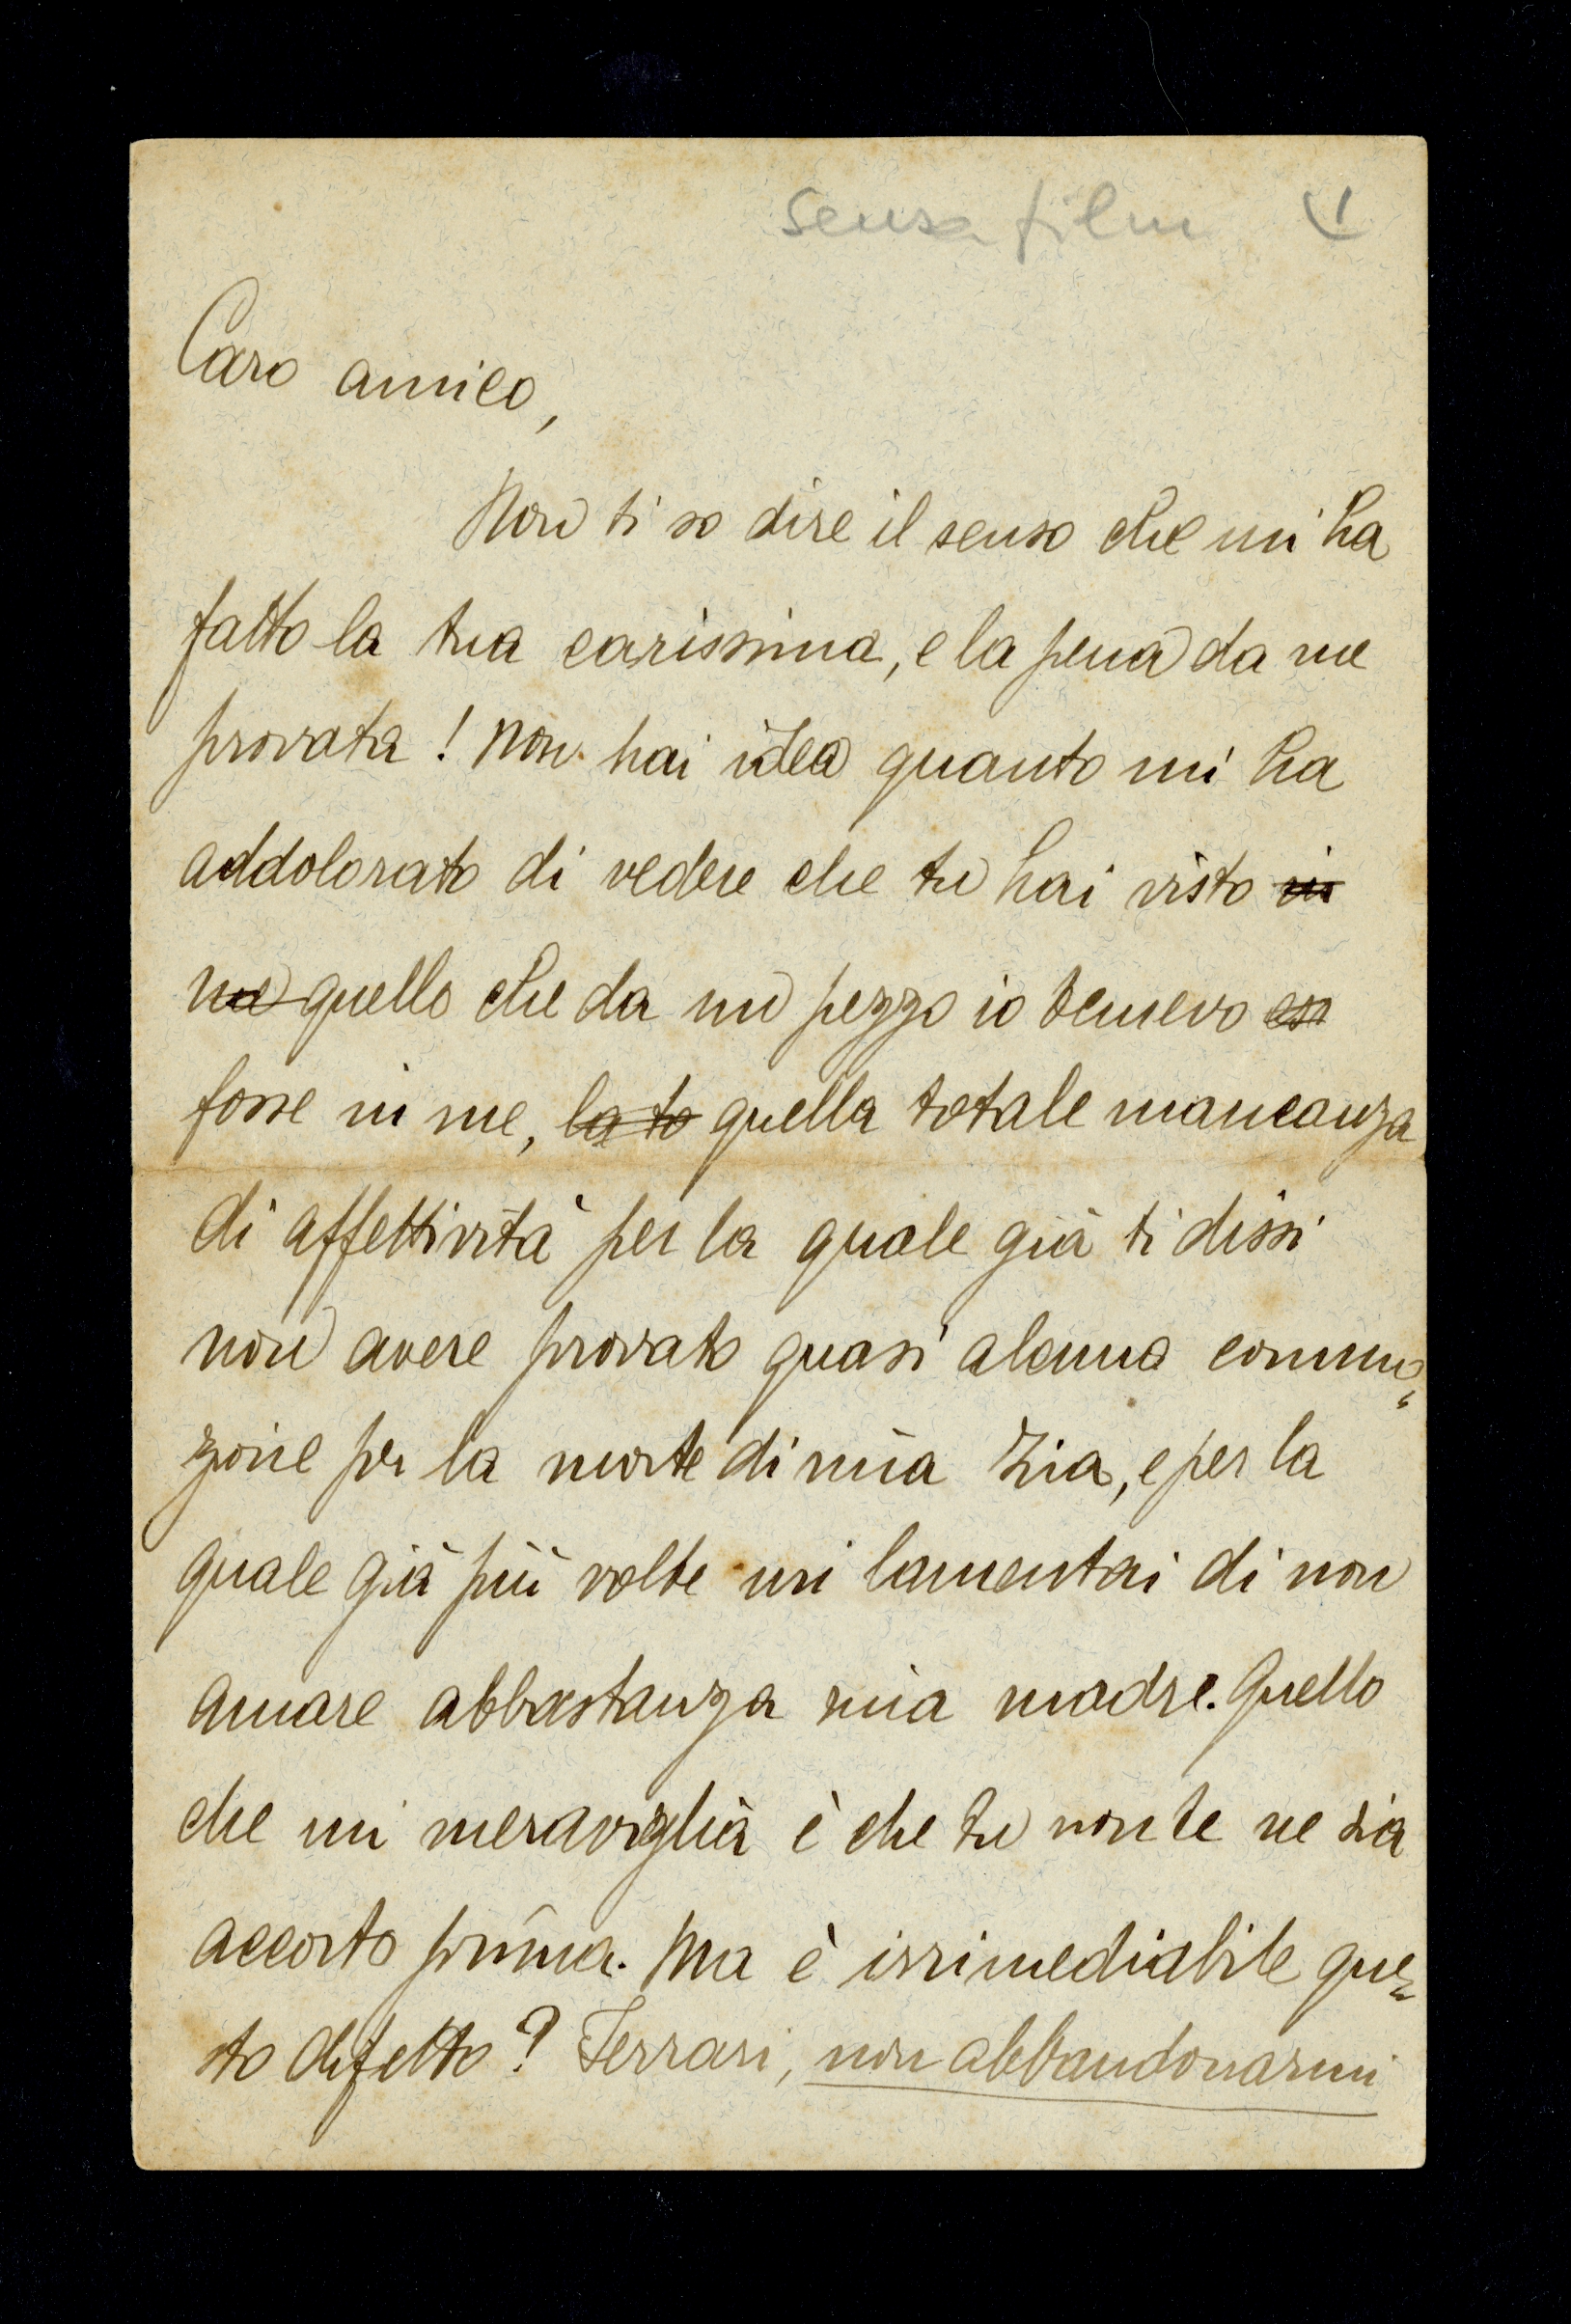 senza film
Caro amico,
Non ti so dire il senso che mi ha
fatto la tua carissima, e la pena da me
provata! Non hai idea quanto mi ha
addolorato di vedere che tu hai visto in
me quello che da un pezzo io temevo
fosse in me, la to quella totale mancanza
di affettività per la quale già ti dissi
non avere provato quasi alcuna commo=
zione per la morte di mia zia, e per la
quale già più volte mi lamentai di non
amare abbastanza mia madre. Quello
che mi meraviglia è che tu non te ne sia
accorto prima. Ma è irrimediabile que=
sto difetto? Ferrari, non abbandonarmi